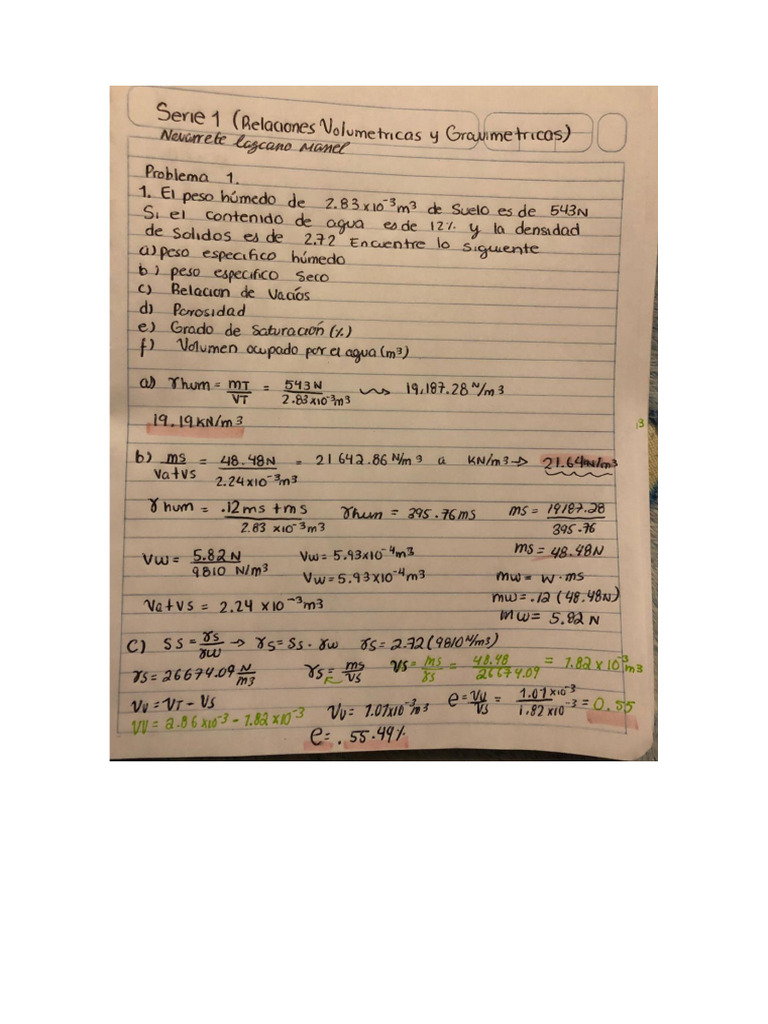 Serie 1 (Relaciones Volumetricas y Gravimetricas)
Navarrete Lazcano Manel
Problema 1.
1. El peso húmedo de 2.83x10⁻³m³ de Suelo es de 543N
Si el contenido de agua es de 12% y la densidad
de Solidos es de 2.72 Encuentre lo Siguiente
a) peso especifico húmedo
b) peso especifico Seco
c) Relacion de Vacíos
d) Porosidad
e) Grado de Saturación (%)
f) Volumen ocupado por el agua (m³)
a) γhum = mT/VT = 543N/2.83x10⁻³m³ ⟿ 19,187.28 N/m3
19.19 KN/m3
b) ms/Va+Vs = 48.48N/2.24x10⁻³m3 = 21 642.86 N/m3 a KN/m3 → 21.64N/m3
γhum = .12ms+ms/2.83 x10⁻³m3 γhum = 395.76ms ms = 19187.28/395.76
ms = 48.48N
Vw = 5.82N/9810 N/m3 Vw = 5.93x10⁻⁴m3
Vw = 5.93x10⁻⁴m3 mw = w·ms
mw = .12 (48.48N)
Va+Vs = 2.24 x10⁻³m3 mw = 5.82 N
C) Ss = γs/γw → γs = Ss · γw γs = 2.72 (9810 N/m3)
γs = 26674.09 N/m3 γs = ms/Vs Vs = ms/γs = 48.48/26674.09 = 1.82 x 10⁻³m3
Vv = VT - Vs Vv = 1.01x10⁻³m3 e = Vv/Vs = 1.01x10⁻³/1.82x10⁻³ = 0.55
Vv = 2.86x10⁻³ - 1.82x10⁻³
e = .55.49%